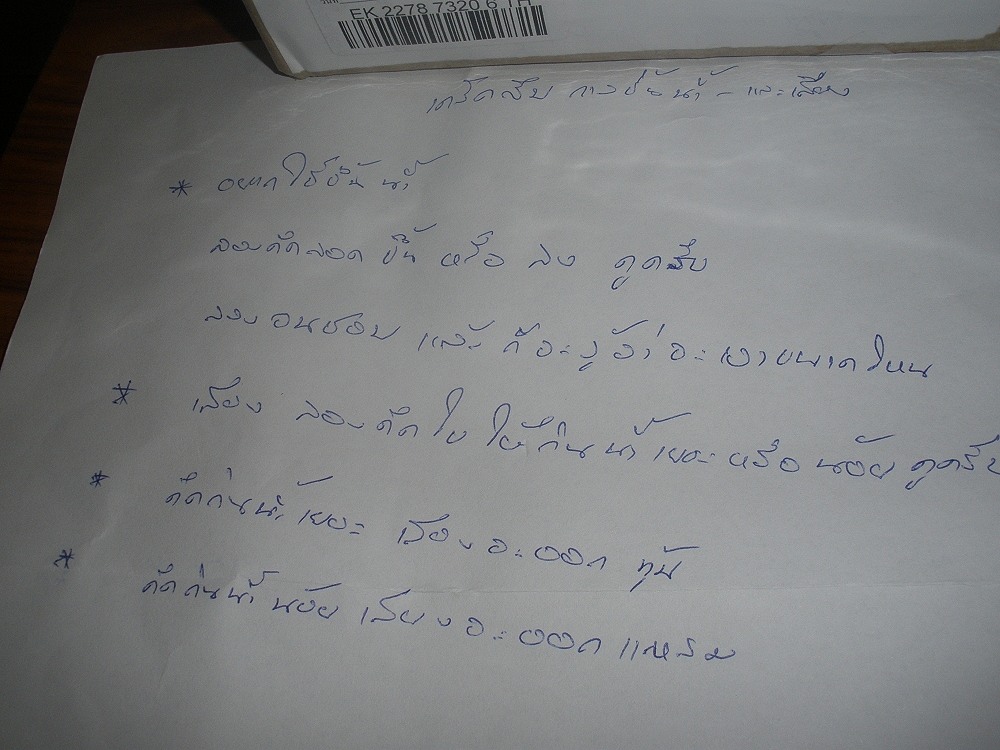 EK 2278 7320 6 TH
เคร็ดลับ การขึ้นน้ำ - และเสียง
* อยากให้ขึ้นน้ำ
ลองดัดลอด ขึ้น หรือ ลง ดูครับ
ลองจนชอบ แล้ว ก็จะรู้ว่าจะเอาขนาดไหน
* เสียง ลองดัดใบ ให้กินน้ำเยอะหรือน้อย ดูครับ
* ดัดกินน้ำเยอะ เสียงจะออก ทุ้ม
* ดัดกินน้ำน้อย เสียงจะออกแหลม